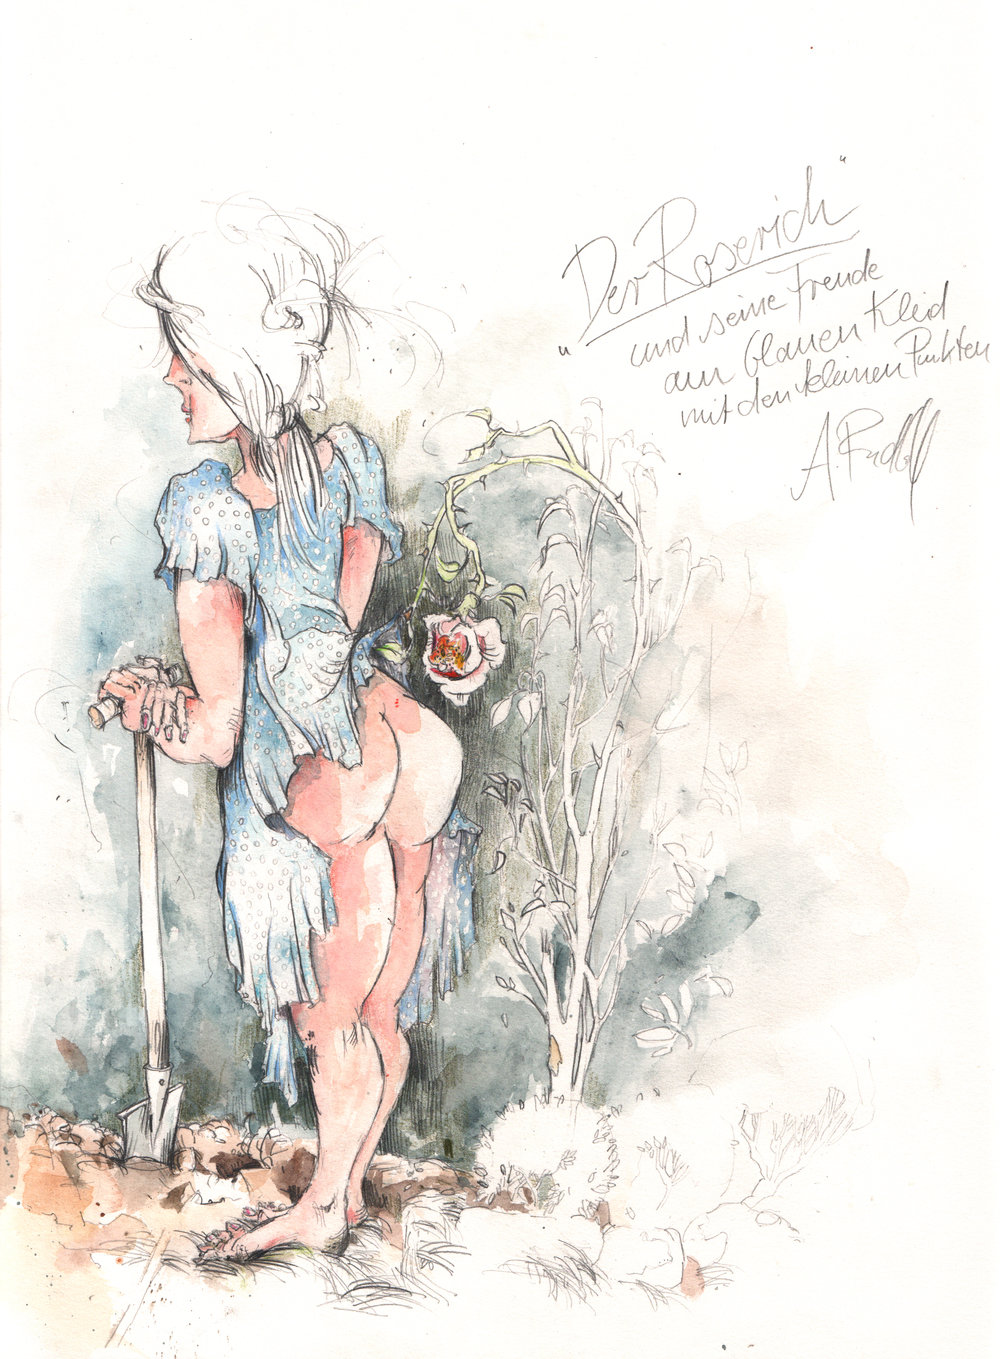 "Der Roserich"
und seine Freude
am blauen Kleid
mit den kleinen Punkten
A. Rudolf